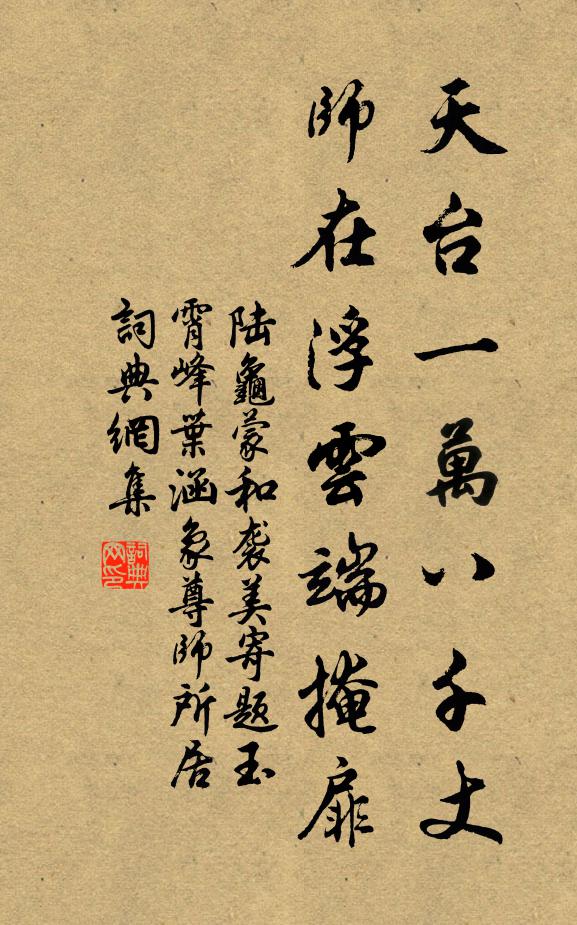 天台一萬八千丈
師在浮雲端掩扉
陸龜蒙和襲美寄題玉
霄峰葉涵象尊師所居
詞典網集
詞典網印